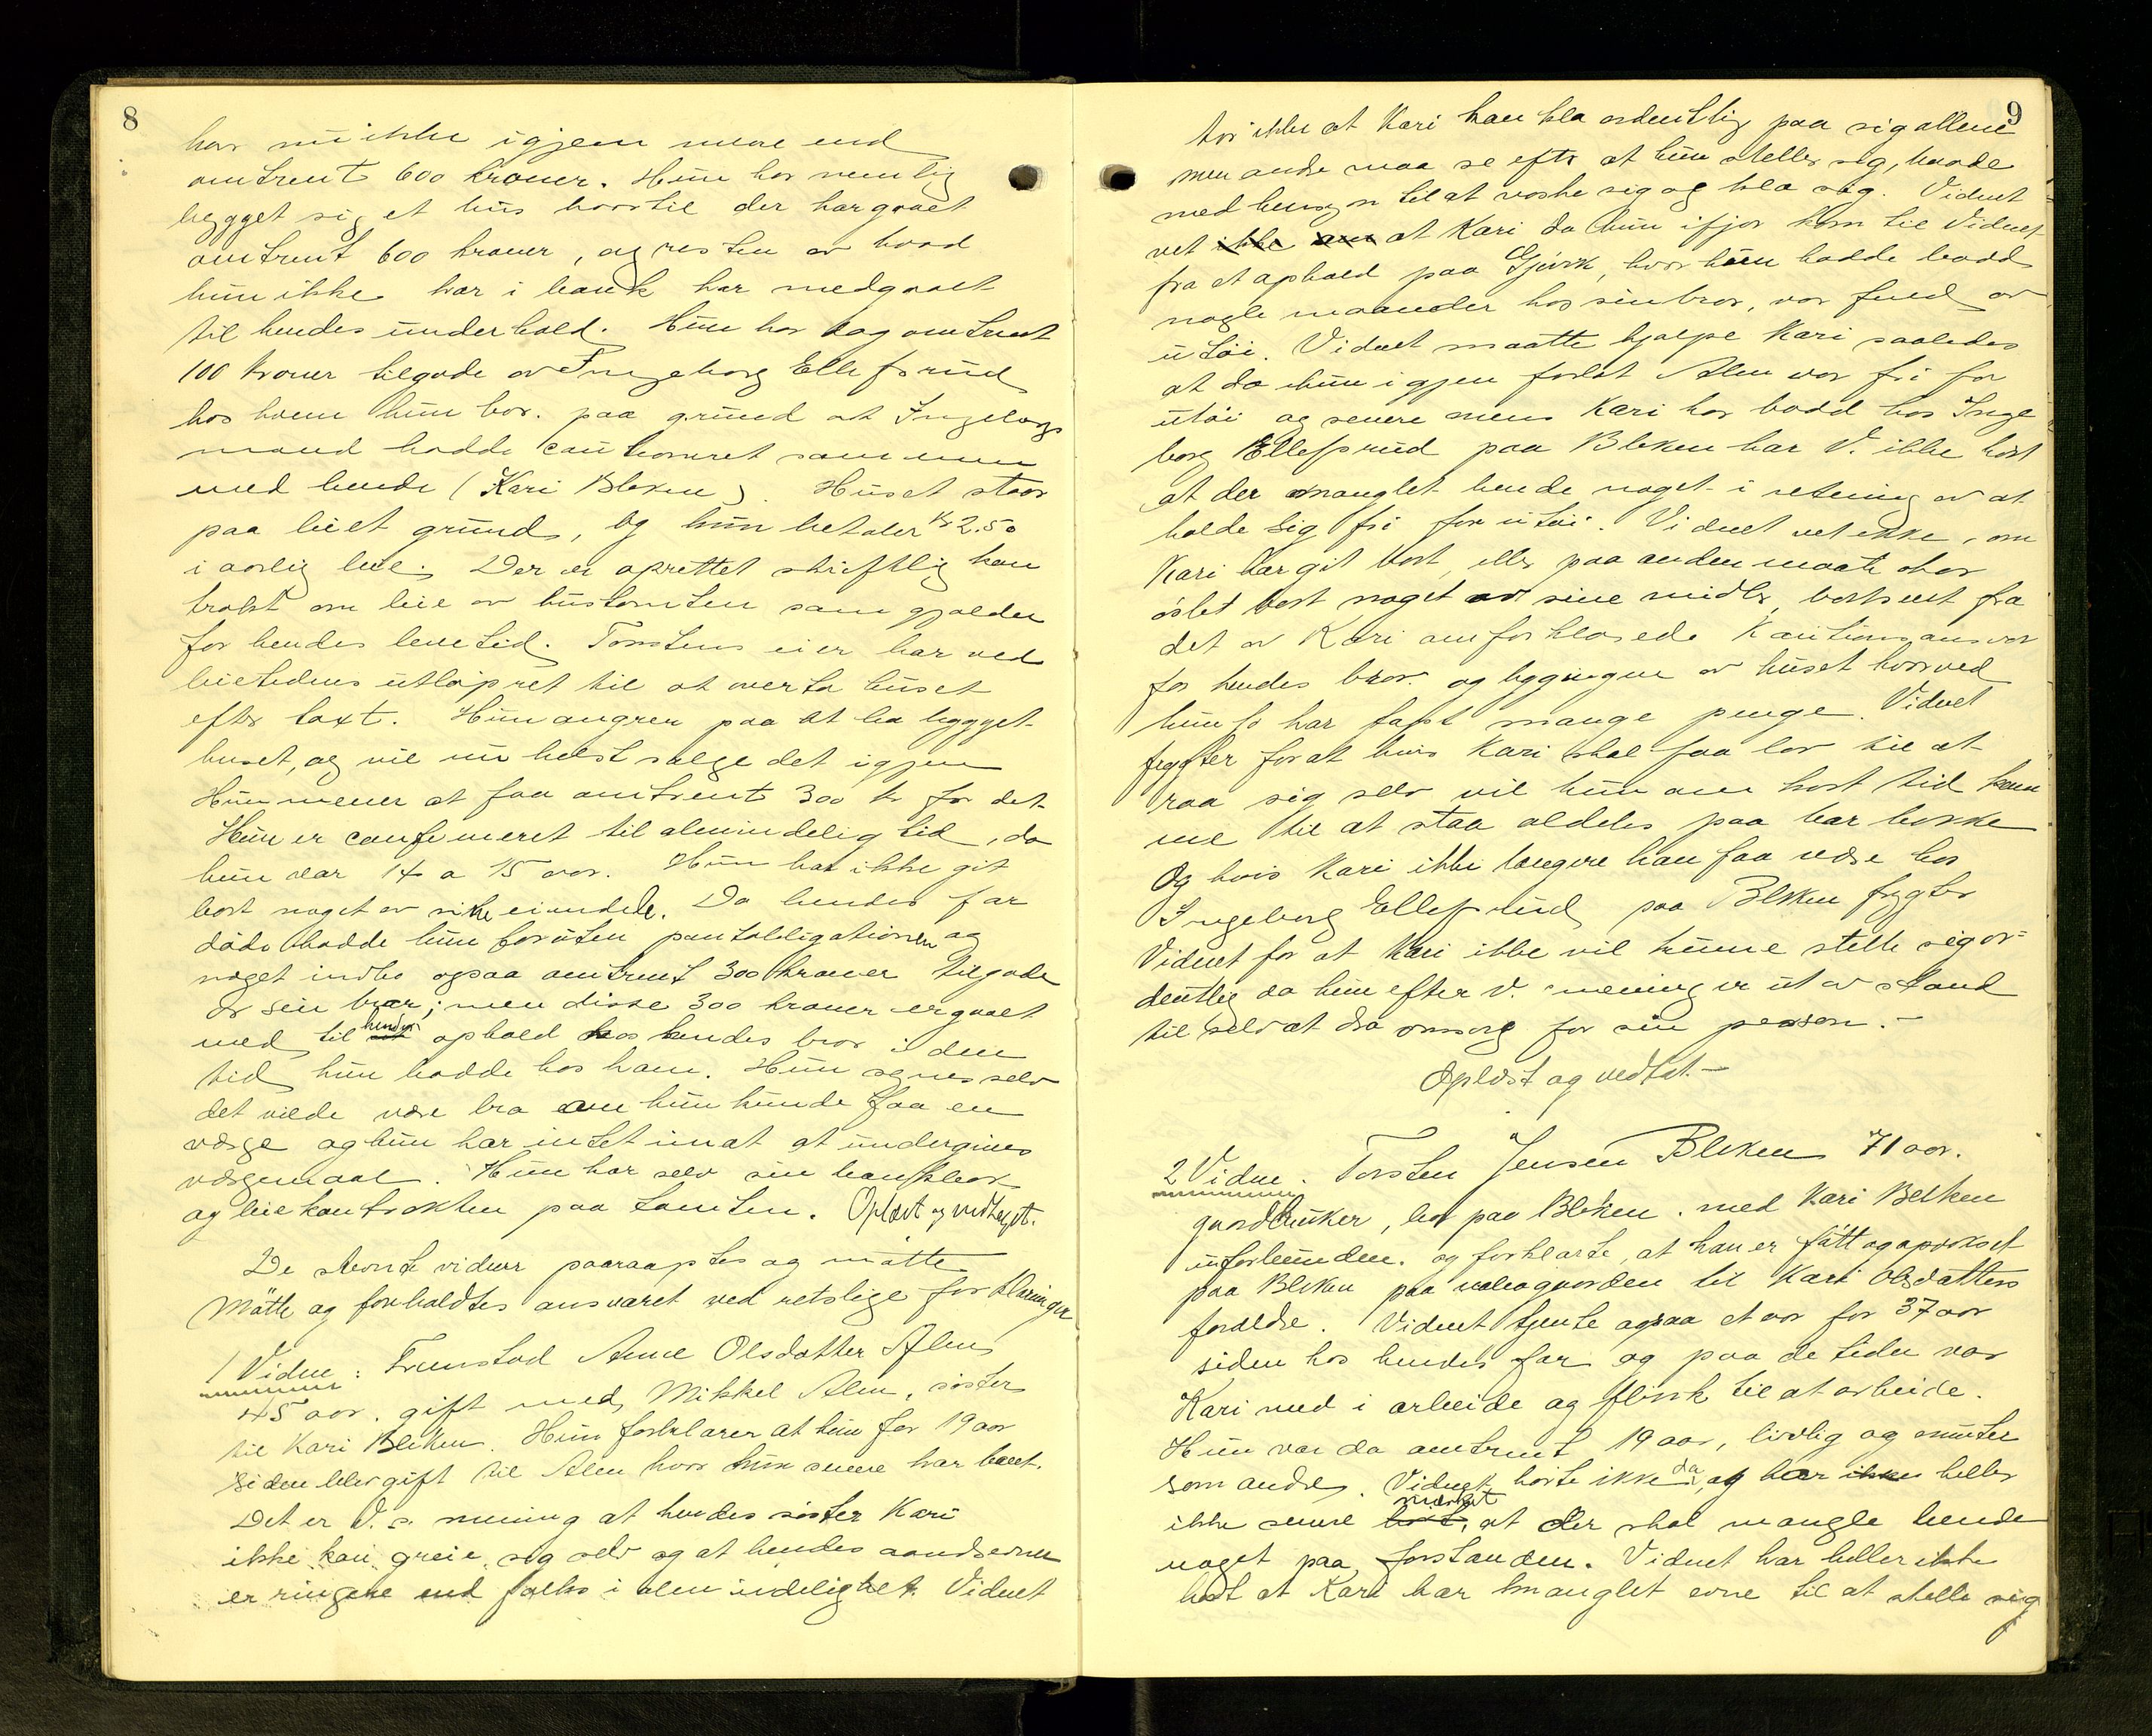 8
har nu ikke igjen mere end
omtrent 600 kroner. Hun har nemlig
bygget sig et hus hvortil der har gaaet
omtrent 600 kroner, og resten av hvad
hun ikke har i bank har medgaaet
til hendes underhold. Hun har dog omtrent
100 kroner tilgode av Ingeborg Ellefsrud
hos hvem hun bor. paa grund at Ingeborgs
mand hadde cautioneret sammen
med hende (Kari Bleken). Huset staar
paa leiet grund, og hun betaler kr 2.50
i aarlig leie. Der er oprettet skriftlig kon
trakt om leie av hustomten som gjælder
for hendes levetid. Tomtens eier har ved
leietidens utløp ret til at overta huset
efter taxt. Hun angrer paa at ha bygget
huset, og vil nu helst sælge det igjen
Hun mener at faa omtrent 300 kr for det
Hun er confirmeret til almindelig tid, da
hun var 14 a 15 aar. Hun har ikke git
bort noget av sine eiendele. Da hendes far
døde hadde hun foruten pantobligationen og
noget indbo ogsaa omtrent 300 kroner tilgode
av sin bror; men disse 300 kroner er gaaet
med til hendes ophold hos hendes bror i den
tid hun bodde hos ham. Hun synes selv
det vilde være bra om hun kunde faa en
værge og hun har intet imot at undergives
værgemaal. Hun har selv sin bankbok
og leiekontrakten paa tomten. Oplæst og vedtaget.
De stevnte vidner paaraaptes og møtte
Møtte og forholdtes ansvaret ved retslige forklaringer
1 Vidne: Fremstod Anne Olsdatter Alm
45 aar. gift med Mikkel Alm, søster
til Kari Bleken. Hun forklarer at hun for 19 aar
siden blev gift til Alm hvor hun senere har boet.
Det er V. s. mening at hendes søster Kari
ikke kan greie sig selv og at hendes aandsevner
er ringere end folks i almindelighet. Vidnet
9
tror ikke at Kari kan klæ ordentlig paa sig allene
men andre maa se efter at hun steller sig, baade
med hensyn til at vaske sig og klæ sig. Vidnet
vet ikke om at Kari da hun ifjor kom til Vidnet
fra et ophold paa Gjøvik, hvor hun hadde bodd
nogle maaneder hos sin bror, var fuld av
utøi. Vidnet maatte hjælpe Kari saaledes
at da hun igjen forlot Alm var fri for
utøi og senere mens Kari har bodd hos Inge
borg Ellefsrud paa Bleken har V. ikke hørt
at der manglet hende noget i retning av at
holde sig fri for utøi. Vidnet vet ikke, om
Kari har git bort, eller paa anden maate har
øslet bort noget av sine midler, bortseet fra
det av Kari omforklarede Kautionsansvar
for hendes bror og bygningen av huset hvorved
hun jo har tapt mange penge. Vidnet
frygter for at hvis Kari skal faa lov til at
raa sig selv vil hun om kort tid kom
me til at staa aldeles paa bar bakke
Og hvis Kari ikke længere kan faa være hos
Ingeborg Ellefsrud paa Bleken frygter
Vidnet for at Kari ikke vil kunne stelle sig or-
dentlig da hun efter V. mening er ut av stand
til selv at dra omsorg for sin person.-
Oplæst og vedtat.-
2 Vidne. Torsten Jensen Bleken 71 aar.
gaardbruker, bor paa Bleken. med Kari Bleken
uforbunden. og forklarte, at han er født og opvokset
paa Bleken paa nabogaarden til Kari Olsdatters
forældre. Vidnet tjente ogsaa et aar for 37 aar
siden hos hendes far og paa de tider var
Kari med i arbeide og flink til at arbeide.
Hun var da omtrent 19 aar, livlig og munter
som andre. Vidnet hørte ikke da, og har ikke heller
ikke senere hørt, merket at der skal mangle hende
noget paa forstanden. Vidnet har heller ikke
hørt at Kari har manglet evne til at stelle sig